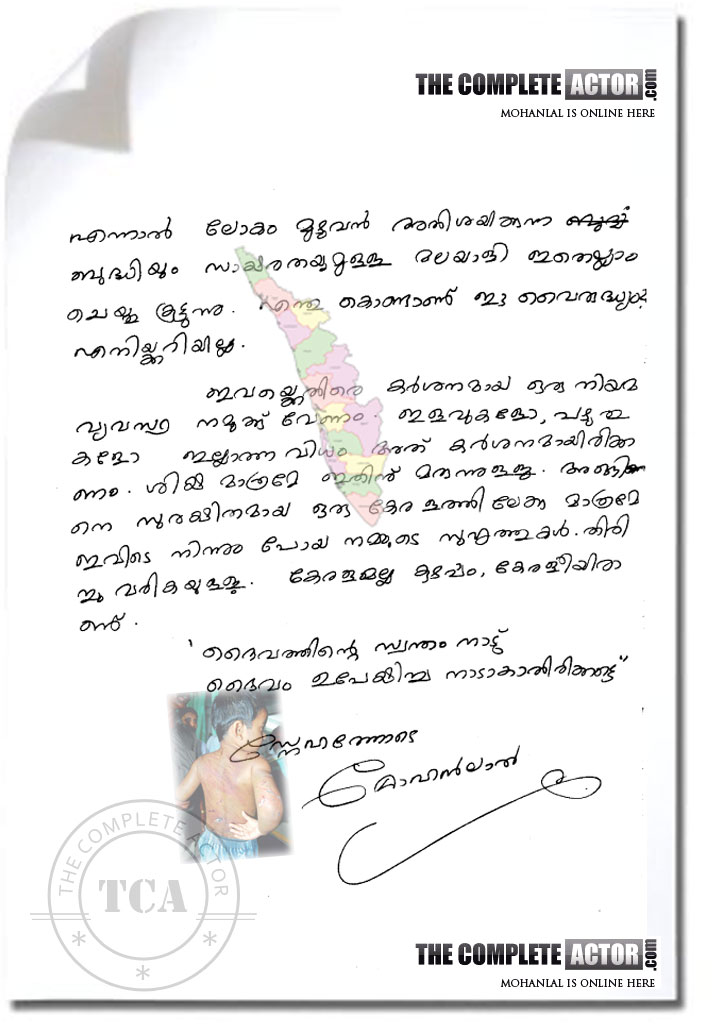 THE COMPLETE ACTOR.com
MOHANLAL IS ONLINE HERE
എന്നാൽ ലോകം മുഴുവൻ അതിശയിക്കുന്ന
ബുദ്ധിയും സാക്ഷരതയുമുള്ള മലയാളി ഇതെല്ലാം
ചെയ്തു കൂട്ടുന്നു. എന്തു കൊണ്ടാണ് ഈ വൈരുദ്ധ്യം?
എനിയ്ക്കറിയില്ല.
ഇവയ്ക്കെതിരെ കർശനമായ ഒരു നിയമ
വ്യവസ്ഥ നമുക്ക് വേണം. ഇളവുകളോ, പഴുതു
കളോ ഇല്ലാത്ത വിധം അത് കർശനമായിരിക്ക
ണം. ശിക്ഷ മാത്രമേ ഇതിന് മരുന്നുള്ളൂ. അങ്ങി
നെ സുരക്ഷിതമായ ഒരു കേരളത്തിലേക്കു മാത്രമേ
ഇവിടെ നിന്നും പോയ നമ്മുടെ സുഹൃത്തുകൾ. തിരി
ച്ചു വരികയുള്ളൂ. കേരളമല്ല കുഴപ്പം, കേരളീയരിതാ
ണ്.
'ദൈവത്തിന്റെ സ്വന്തം നാട്ട്
ദൈവം ഉപേക്ഷിച്ച നാടാകാതിരിക്കട്ടെ'
സ്നേഹത്തോടെ
മോഹൻലാൽ
THE COMPLETE ACTOR
TCA
THE COMPLETE ACTOR.com
MOHANLAL IS ONLINE HERE